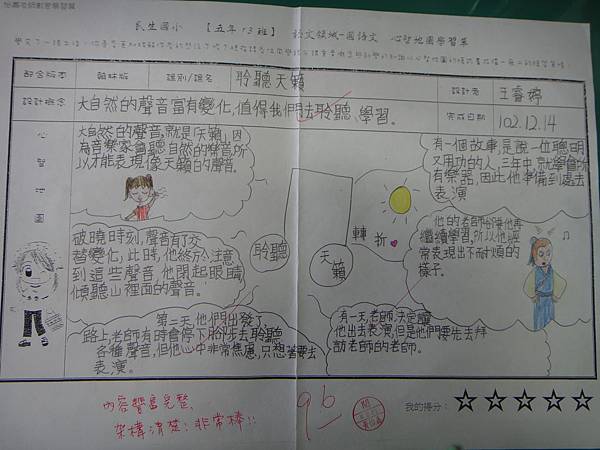 民生國小 【五年13班】 語文領域-國語文 心智地圖學習單
配合版本 翰林版 課別/課名 聆聽天籟 設計者 王睿婷
設計概念 大自然的聲音富有變化,值得我們去聆聽、學習。 完成日期 102.12.14
心智地圖
大自然的聲音,就是天籟,因
為音樂家會聽自然的聲音所
以才能表現像天籟的聲音。
破曉時刻,聲音有了交
替變化,此時,他終於注意
到這些聲音,他閉起眼睛
傾聽山裡面的聲音。
第二天,他們出發了,
路上,老師有時會停下腳步去聆聽
各種聲音,但他心中非常焦慮,只想著要去
表演。
聆聽
天籟
轉折
有一個故事,是說一位聰明
又用功的人,三年中,就學會所
有樂器,因此他準備到處去
表演
他的老師
繼續學習,所以他經
常表現出不耐煩的
樣子。
有一天,老師決定讓
他出去表演,但是他們要先去拜
訪老師的老師。
內容豐富完整、
架構清楚!非常棒!!
96
我的得分:☆☆☆☆☆